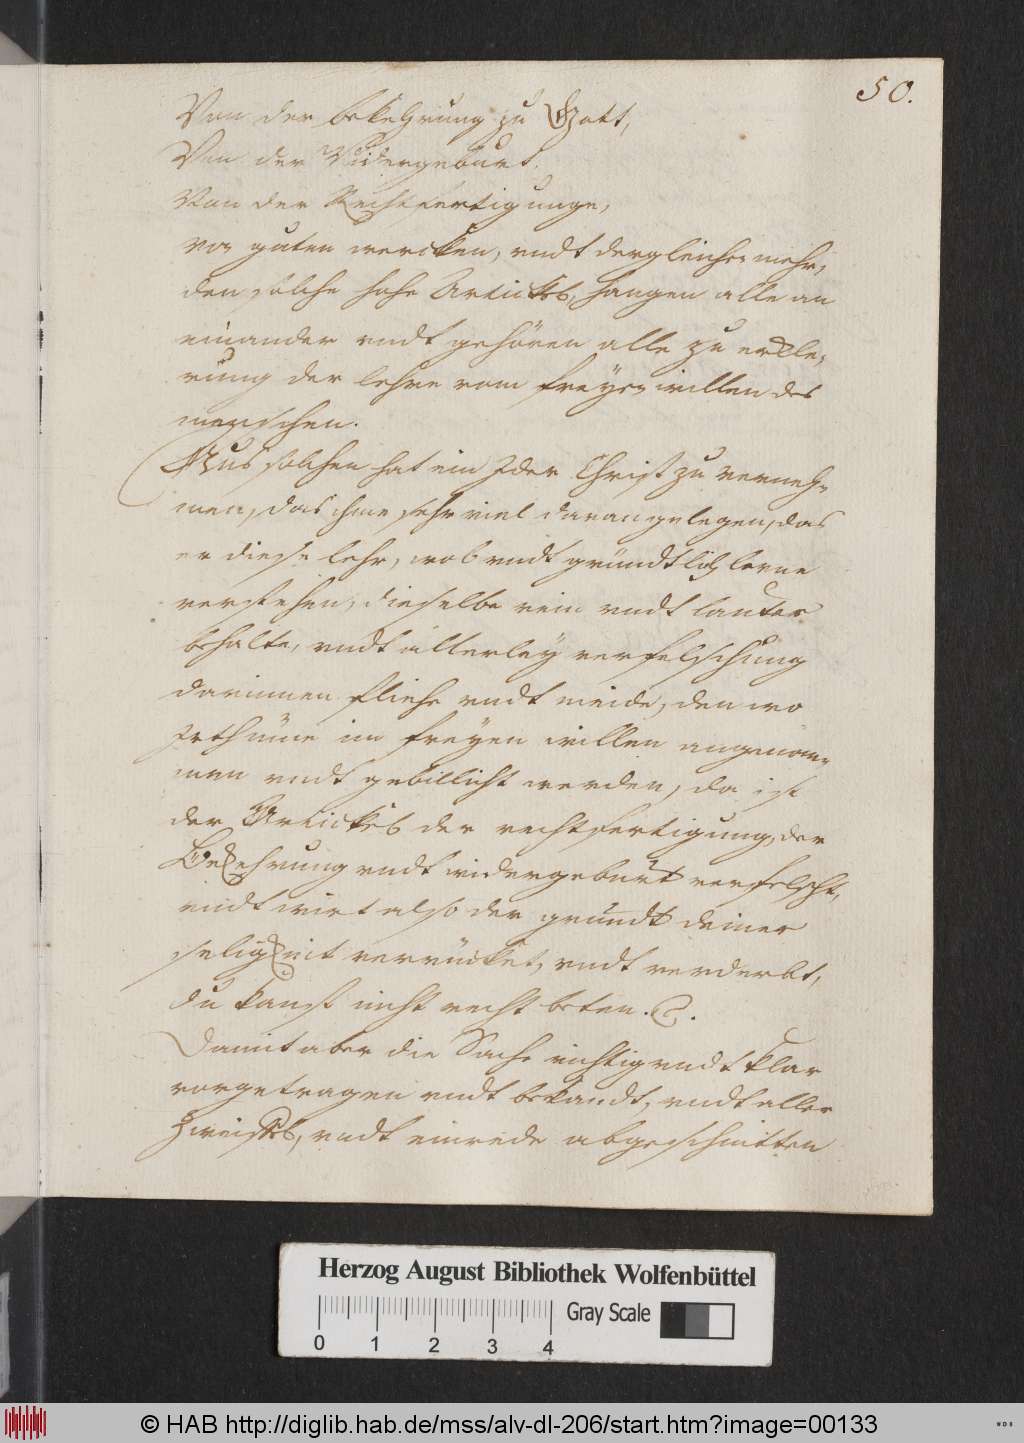 50.
Von der bekehrung zu Gott,
Von der Widergeburt.
Von der Rechtfertigunge,
von guten wercken, vndt dergleichen mehr,
den solche hohe Artickel, hangen alle an
einander vndt gehören alle zu erkle,
rung der lehre vom freyen willen des
menschen.
Aus solchen hat ein Jder Christ zu verneh,
men, das ihme sehr viel daran gelegen, das
er diese lehr, wol vndt gründtlich lerne
verstehen, dieselbe rein vndt lauter
behalte, vndt allerley verfelschung
darinnen fliehe vndt meide, den wo
Irthüme im freyen willen angenom,
men vndt gebillicht werden, da ist
der Artickel der rechtfertigung, der
Bekehrung vndt widergeburt verfelscht,
vndt wirt also der grundt deiner
seligkeit verrücket, vndt verderbt,
du kanst nicht recht beten.
Damit aber die Sache richtig vndt klar
vorgetragen vndt bekandt, vndt aller
Zweiffel, vndt einrede abgeschnitten
Herzog August Bibliothek Wolfenbüttel
0 1 2 3 4 Gray Scale
© HAB http://diglib.hab.de/mss/alv-dl-206/start.htm?image=00133
WDB